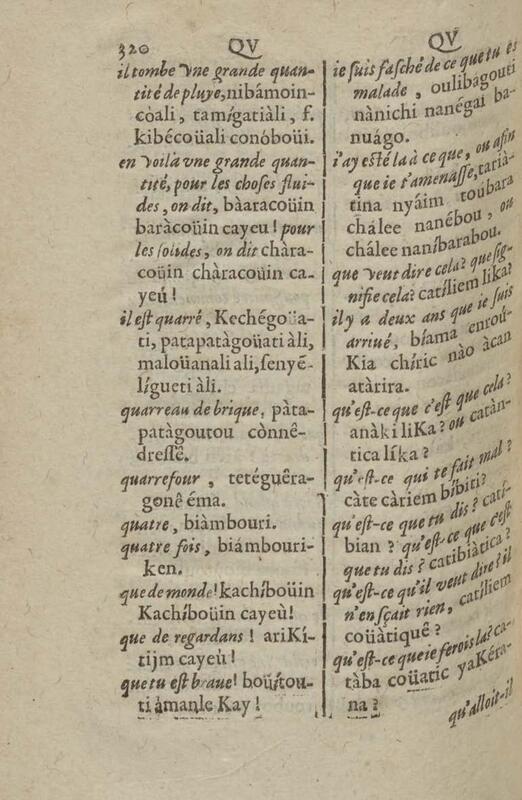 320
QV
QV
il tombe vne grande quan-
tité de pluye, nibámoin-
còali, tamígatiàli, f.
kibécoüali conóboüi.
en voilà vne grande quan-
tité, pour les choses flui-
des, on dit, bàaracoüin
baràcoüin cayeu! pour
les solides, on dit chàra-
coüin chàracoüin ca-
yeú!
il est quarré, Kechégoüa-
ti, patapatàgoüati àli,
maloüanali ali, senyé-
lígueti àli.
quarreau de brique, pàta-
patàgoutou cònnê-
dressê.
quarrefour, tetéguêra-
gonê éma.
quatre, biàmbouri.
quatre fois, biámbouri-
ken.
que de monde! kachíboüin
Kachíboüin cayeù!
que de regardans! ariKí-
tijm cayeù!
que tu est braue! boüítou-
ti àmanle Kay!
ie suis fasché de ce que tu és
malade, oulibagouti
nànichi nanégai ba-
nuágo.
i'ay esté là à ce que, ou afin
que ie t'amenasse, tarià-
tina nyáim toubara
chálee nanébou, ou
chálee naníbarabou.
que veut dire cela? que sig-
nifie cela? catíliem lika?
il y a deux ans que ie suis
arriué, bíama enroü-
Kia chíric nào àcan
atàrira.
qu'est-ce que c'est que cela?
anàki liKa? ou catàn-
tica líka?
qu'est-ce qui te fait mal?
càte càriem bíbiti?
qu'est-ce que tu dis? catí-
bian? qu'est-ce que c'est
que tu dis? catibiàtica?
qu'est-ce qu'il veut dire? il
n'en sçait rien, catíliem
coüàtiquê?
qu'est-ce que ie ferois là? ca-
tàba coüatic yaKéra-
na?
qu'alloit-il